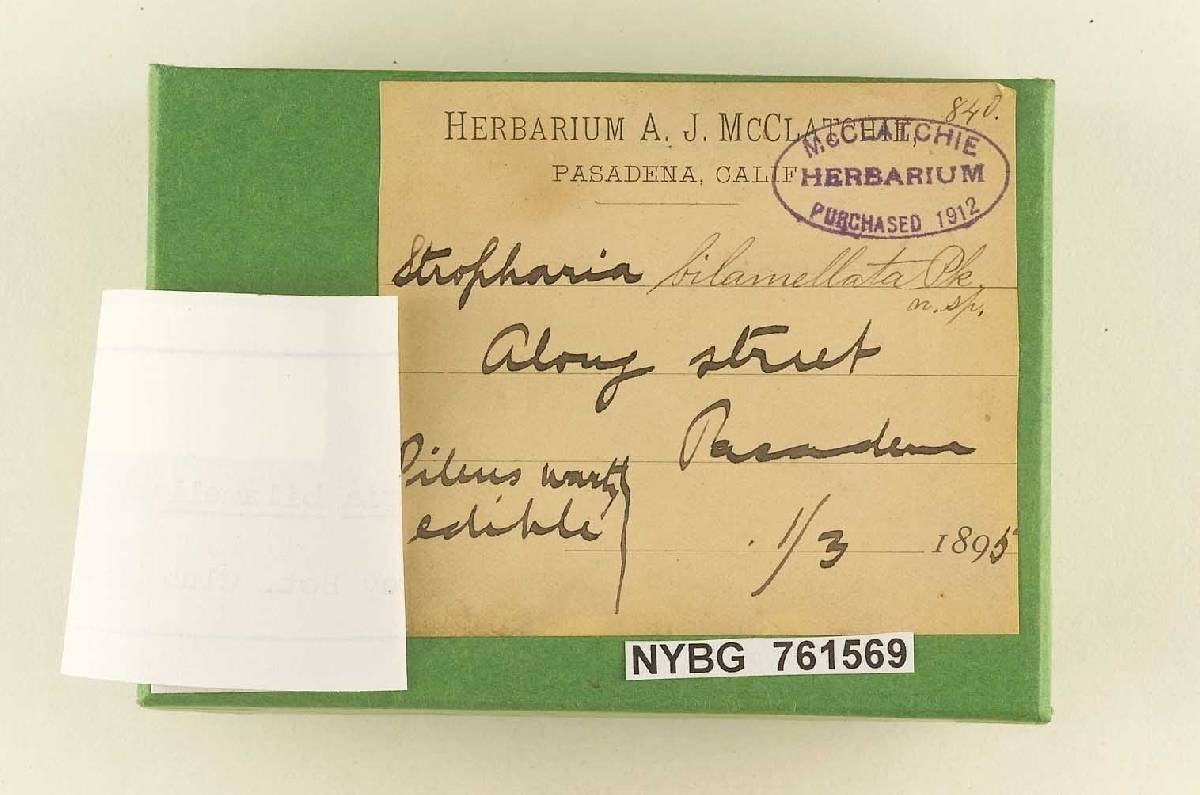 840.
HERBARIUM A. J. MCCLATCHIE,
PASADENA, CALIF
McCLATCHIE
HERBARIUM
PURCHASED 1912
Stropharia bilamellata Pk.
n. sp.
Along street
Pasadena
Pileus warty
edible
1/3 1895
NYBG 761569